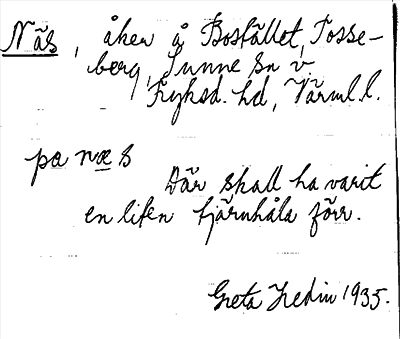 Näs, åker å Bosfället, Tosse-
berg, Sunne sn v.
Fryksd. hd, Värml. l.
pa næs
Där skall ha varit
en liten tjärnhåla förr.
Greta Hedin 1935.